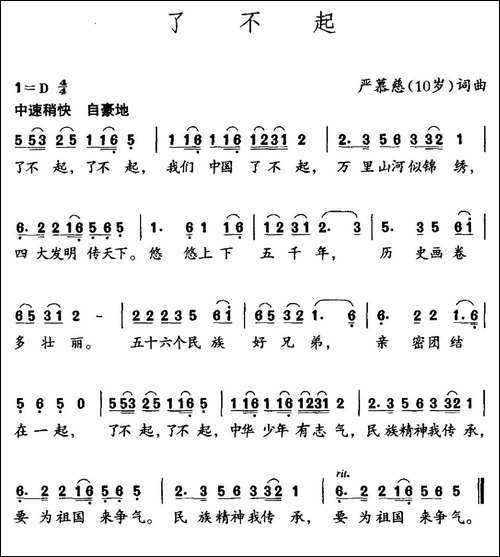 了不起
1=D 4/4
严慕慈(10岁)词曲
中速稍快 自豪地
5 53 25 1 16 5 | 1 16 116 1231 2 | 2. 3 5 6 3 32 1 |
了不 起，了不 起， 我们 中国 了 不 起， 万 里山河似锦 绣，
6. 2 2 16 5 6 5 | 1. 6 1 16 | 6 35 31 2. 3 | 5. 3 5 6i |
四 大发明 传天下。悠 悠上下 五 千 年， 历 史画 卷
65 31 2 - | 2 2 2 3 5 6i | 65 35 31 2 | 1. 6 | 6. 2 2 1.6 |
多 壮 丽。 五十六个民 族 好 兄 弟， 亲 密团 结
5 6 5 0 | 5 53 25 1 16 5 | 1 16 116 1231 2 | 2. 3 5 6 3 32 1 |
在 一 起， 了不 起，了不 起， 中华 少年 有志 气， 民 族精神我传 承，
rit.
6. 2 2 16 5 6 5 | 2. 3 5 6 3 32 1 | 6. 2 2 16 5 6 5 ‖
要 为祖国 来争气。 民 族精神我传 承， 要 为祖国 来争气。